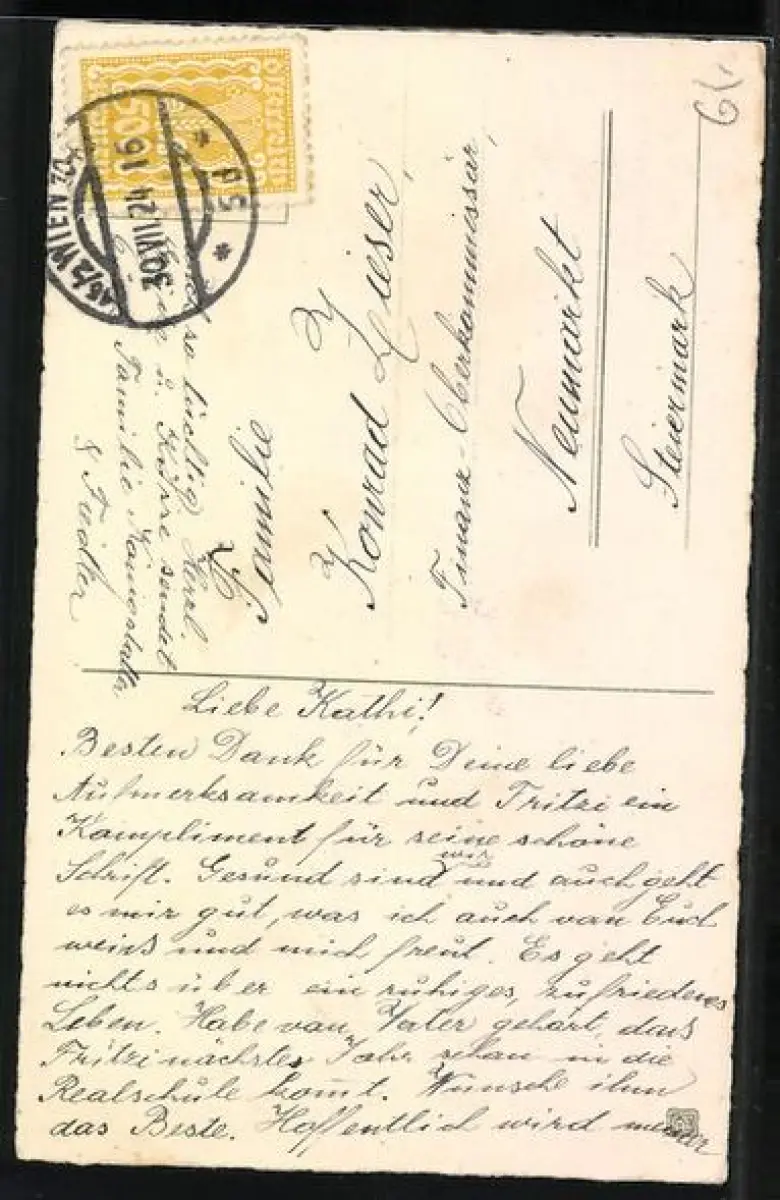 Liebe Kathi!
Besten Dank für Deine liebe
Aufmerksamkeit und Fritzi ein
Kompliment für seine schöne
Schrift. Gesund sind wir und auch geht
es mir gut, was ich auch von Euch
weiß und mich freut. Es geht
nichts über ein ruhiges, zufriedenes
Leben. Habe von Vater gehört, dass
Fritzi nächstes Jahr schon in die
Realschule kom̄t. Wünsche ihm
das Beste. Hoffentlich wird
so tüchtig. Herzl.
u. Küsse sendet
Familie
& Fiedler
Familie
Konrad Zieser,
Finanz-Oberkommissär,
Neumarkt
Steiermark
WIEN
30.VII.24 16
5d
50